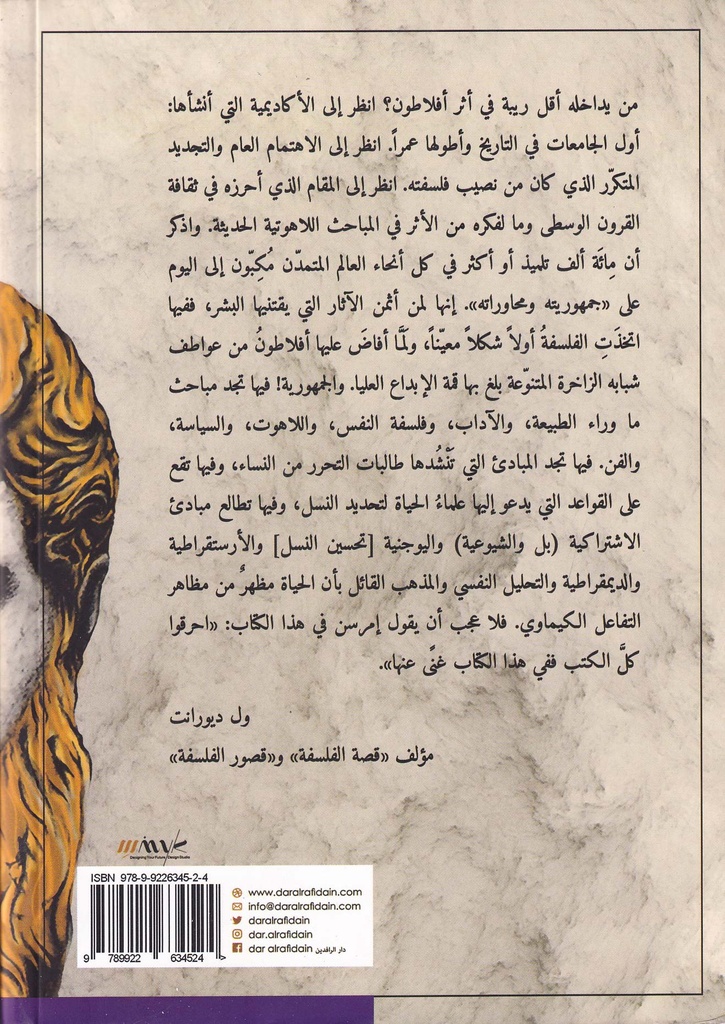 من يداخله أقل ريبة في أثر أفلاطون؟ انظر إلى الأكاديمية التي أنشأها:
أول الجامعات في التاريخ وأطولها عمراً. انظر إلى الاهتمام العام والتجديد
المتكرّر الذي كان من نصيب فلسفته. انظر إلى المقام الذي أحرزه في ثقافة
القرون الوسطى وما لفكره من الأثر في المباحث اللاهوتية الحديثة. واذكر
أن مِائَة ألف تلميذ أو أكثر في كل أنحاء العالم المتمدّن مُكِبّون إلى اليوم
على «جمهوريته ومحاوراته». إنها لمن أثمن الآثار التي يقتنيها البشر، ففيها
اتخذَتِ الفلسفةُ أولاً شكلاً معيّناً، ولَمَّا أفاضَ عليها أفلاطونُ من عواطف
شبابه الزاخرة المتنوّعة بلغ بها قمة الإبداع العليا. والجمهورية! فيها تجد مباحث
ما وراء الطبيعة، والآداب، وفلسفة النفس، واللاهوت، والسياسة،
والفن. فيها تجد المبادئ التي تَنْشُدها طالبات التحرر من النساء، وفيها تقع
على القواعد التي يدعو إليها علماءُ الحياة لتحديد النسل، وفيها تطالع مبادئ
الاشتراكية (بل والشيوعية) واليوجنية [تحسين النسل] والأرستقراطية
والديمقراطية والتحليل النفسي والمذهب القائل بأن الحياة مظهرٌ من مظاهر
التفاعل الكيماوي. فلا عجب أن يقول إمرسن في هذا الكتاب: «احرقوا
كلَّ الكتب ففي هذا الكتاب غنًى عنها».
ول ديورانت
مؤلف «قصة الفلسفة» و«قصور الفلسفة»
Designing Your Future | Design Studio
ISBN 978-9-9226345-2-4
9 789922 634524 >
www.daralrafidain.com
info@daralrafidain.com
daralrafidain
dar.alrafidain
dar alrafidain دار الرافدين